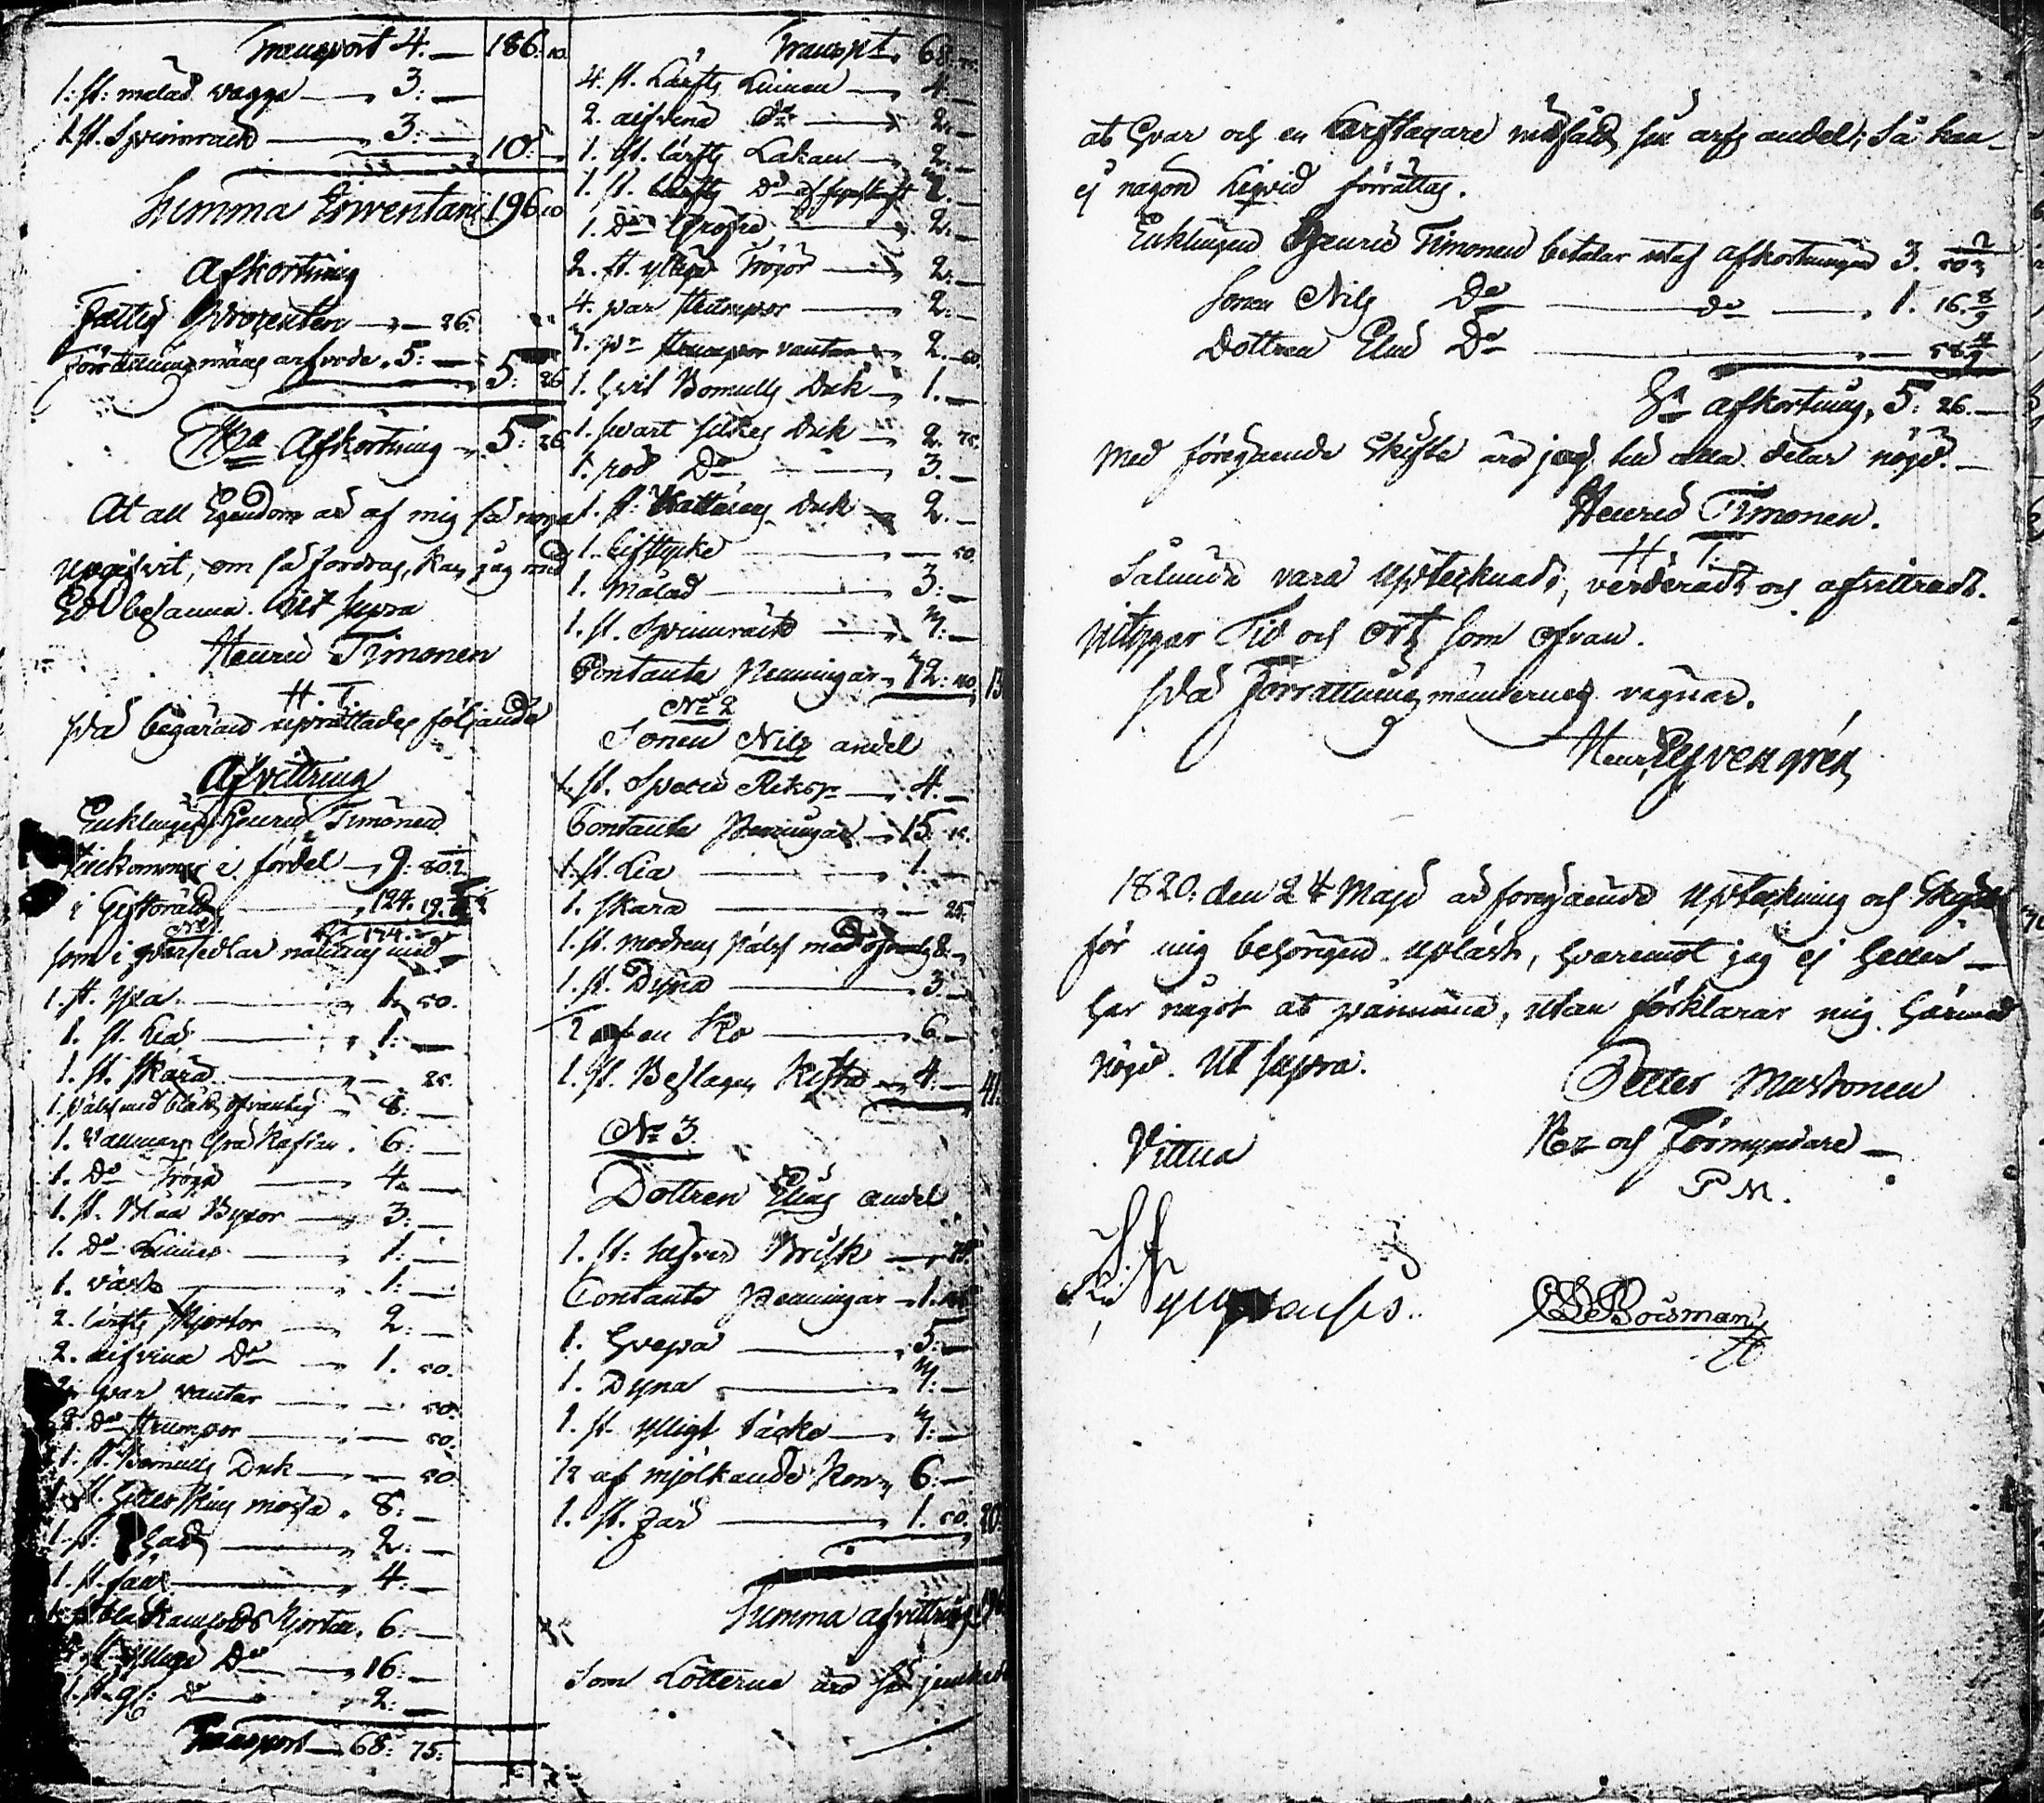 Transport 4.— 186. 10.
1. st. målad vagga — 3.—
1 st. Spinnrock — 3.— 10.
Summa Inventarii 196. 10
Afkortning
Fattig Procenten — 26.
Förrättningsmäns arfvode 5.— 5: 26
Afkortning 5: 26
At all Egendom är af mig så noga
uppgifvit, om så fordras, kan jag med
Ed besanna. Ut supra
Henric Timonen
H. T.
på begäran uprättades följande
Afvittring
Enklingen Henric Timonen
tilkommer i fördel — 9. 80.
i Giftorätt — 124. 19.
No 1.
som i persedlar nämnas med
1. st. yxa — 1. 50.
1. st. Lia — 1.—
1. st. skära — 25.
1. päls med blått öfvantyg — 8.—
1. Vallmars Grå Kaftan 6.—
1. Do Tröja — 4.—
1. st. blåa Byxor — 3.—
1. Do — 1.—
1. väst — 1.—
2. lärfts skjortor — 2.—
2. aifvina Do — 1. 50.
par vantar — 50.
2. Do strumpor — 50.
1. st. Bomulls Duk — 50.
1. st. skins mössa 8.—
1. st. — 2.—
1. st. — 4.—
blå Kamlods Kjortel 6.—
st. yllen Do — 16.—
1. st. gl: Do — 2.—
Transport 68: 75:
Transpt 68.
4. st. Lärfts Linnen — 4.—
2. aifvina Do — 2.—
1. st. lärfts Lakan — 2.—
1. st. lärfts Do 2.—
1. Do Grofre — 2.—
2. st. yllen Tröjor — 2.—
4. par strumpor — 2.—
pr vantar 2. 50.
1. hvit Bomulls Duk 1.—
1. svart silkes Duk 2. 25.
1. röd Do — 3.—
1. st. Kattuns Duk 2.—
1. Lifstycke — 50.
1. målad — 3.—
1. st. Spinnrock —
Contanta Penningar
No 2
Sonen Nils andel
1. st. Specie Riksdr 4.—
Contanta Penningar 15.
1. st. Lia — 1.—
1. skära — 25.
1. st. modrens päls med öfvantyg 8.
1. st. Dyna — 3.—
af en Ko — 6.—
1. st. Beslagen Kista 4.— 41
No 3.
Dottren Elins andel
1. st: silfver Brisk — 75.
Contanta Penningar 1.
1. hvepa — 5.—
1. Dyna
1. st. ylligt täcke
1/2 af mjölkande Kon 6.—
1. st. får — 1. 50. 20
Summa afvittring
Som Lotterna äro så
at svar och en Lärftagare sin arfs andel; så kan
ej någon Liqvid förrättas.
Enklingen Henric Timonen betalar utaf afkortningen 3. 50 2/3
Sonen Nils Do — do — 1. 16. 8/9
Dottren Elin Do — 58 4/9
Sa afkortning, 5: 26.—
Med föregående Skifte är jag till alla delar nögd.—
Henric Timonen.
H. T.
Sålunda vara Upteknadt, värderadt och afvittradt.
vitsgar Tid och Ort som ofvan.
På Förrättningsmännernes vägnar.
Henr.
1820. den 24 Maji är föregående Upteckning och Skifte
för mig behörigen upläst, hvaremot jag ej heller
har något at påminna, utan förklarar mig härmed
nögd. Ut supra.
Petter Mustonen
och Förmyndare—
P. M.
Vittna